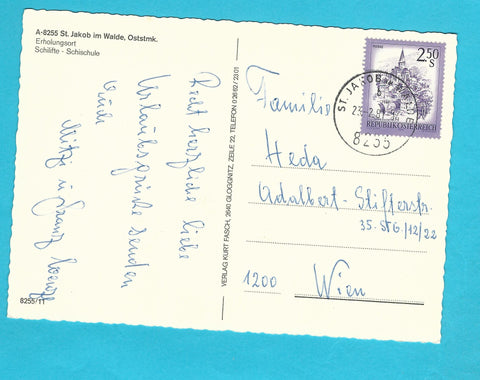 A-8255 St. Jakob im Walde, Oststmk.
Erholungsort
Schilifte - Schischule
Recht herzliche liebe
Urlaubsgrüße senden
Euch
Mitzi u Franz
8255/11
VERLAG KURT FASCH, 2640 GLOGGNITZ, ZEILE 22, TELEFON 0 26 62 / 23 01
2.50
S
REPUBLIK ÖSTERREICH
ST. JAKOB
8255
Familie
Heda
Adalbert-Stifterstr.
35. STG/12/22
1200 Wien